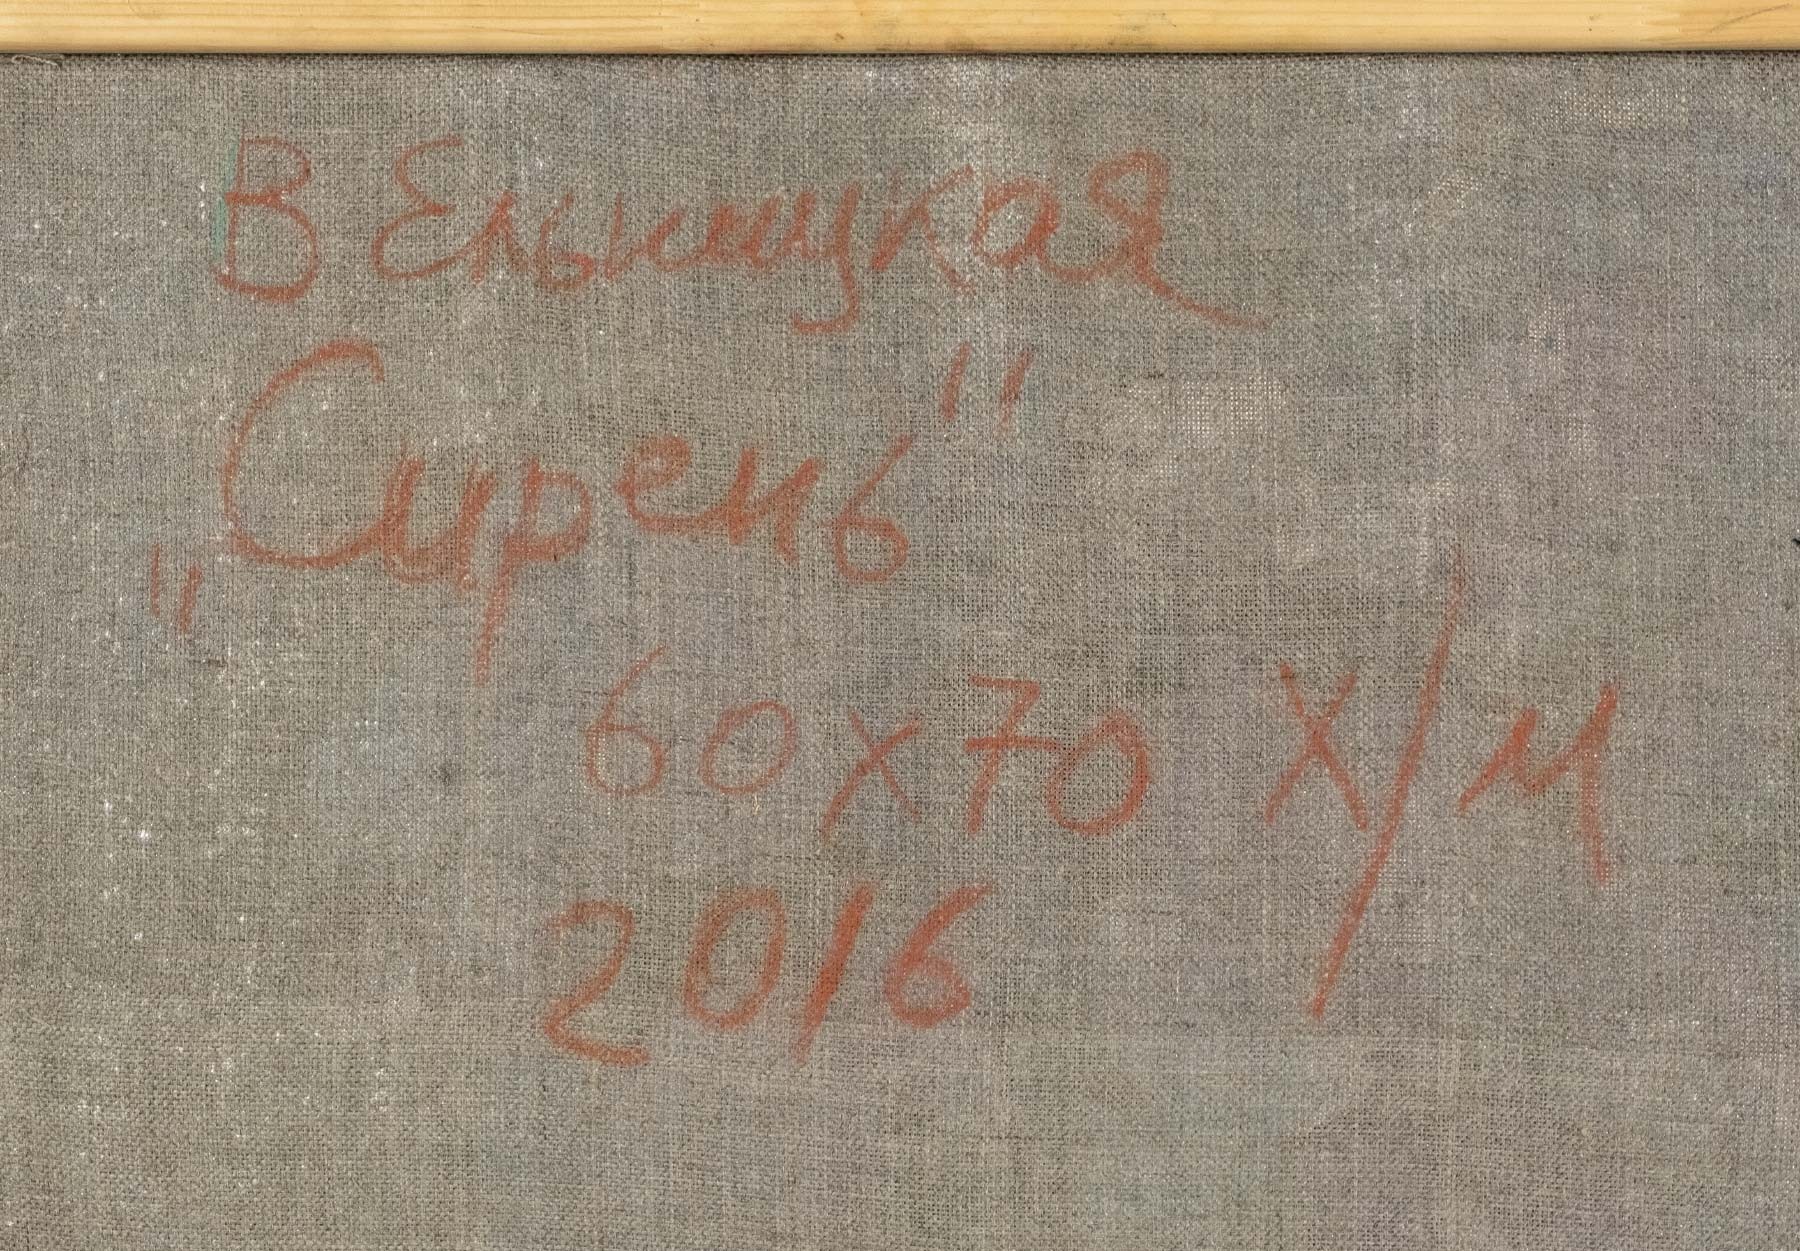 В Ельницкая
„Сирень"
60х70 х/м
2016